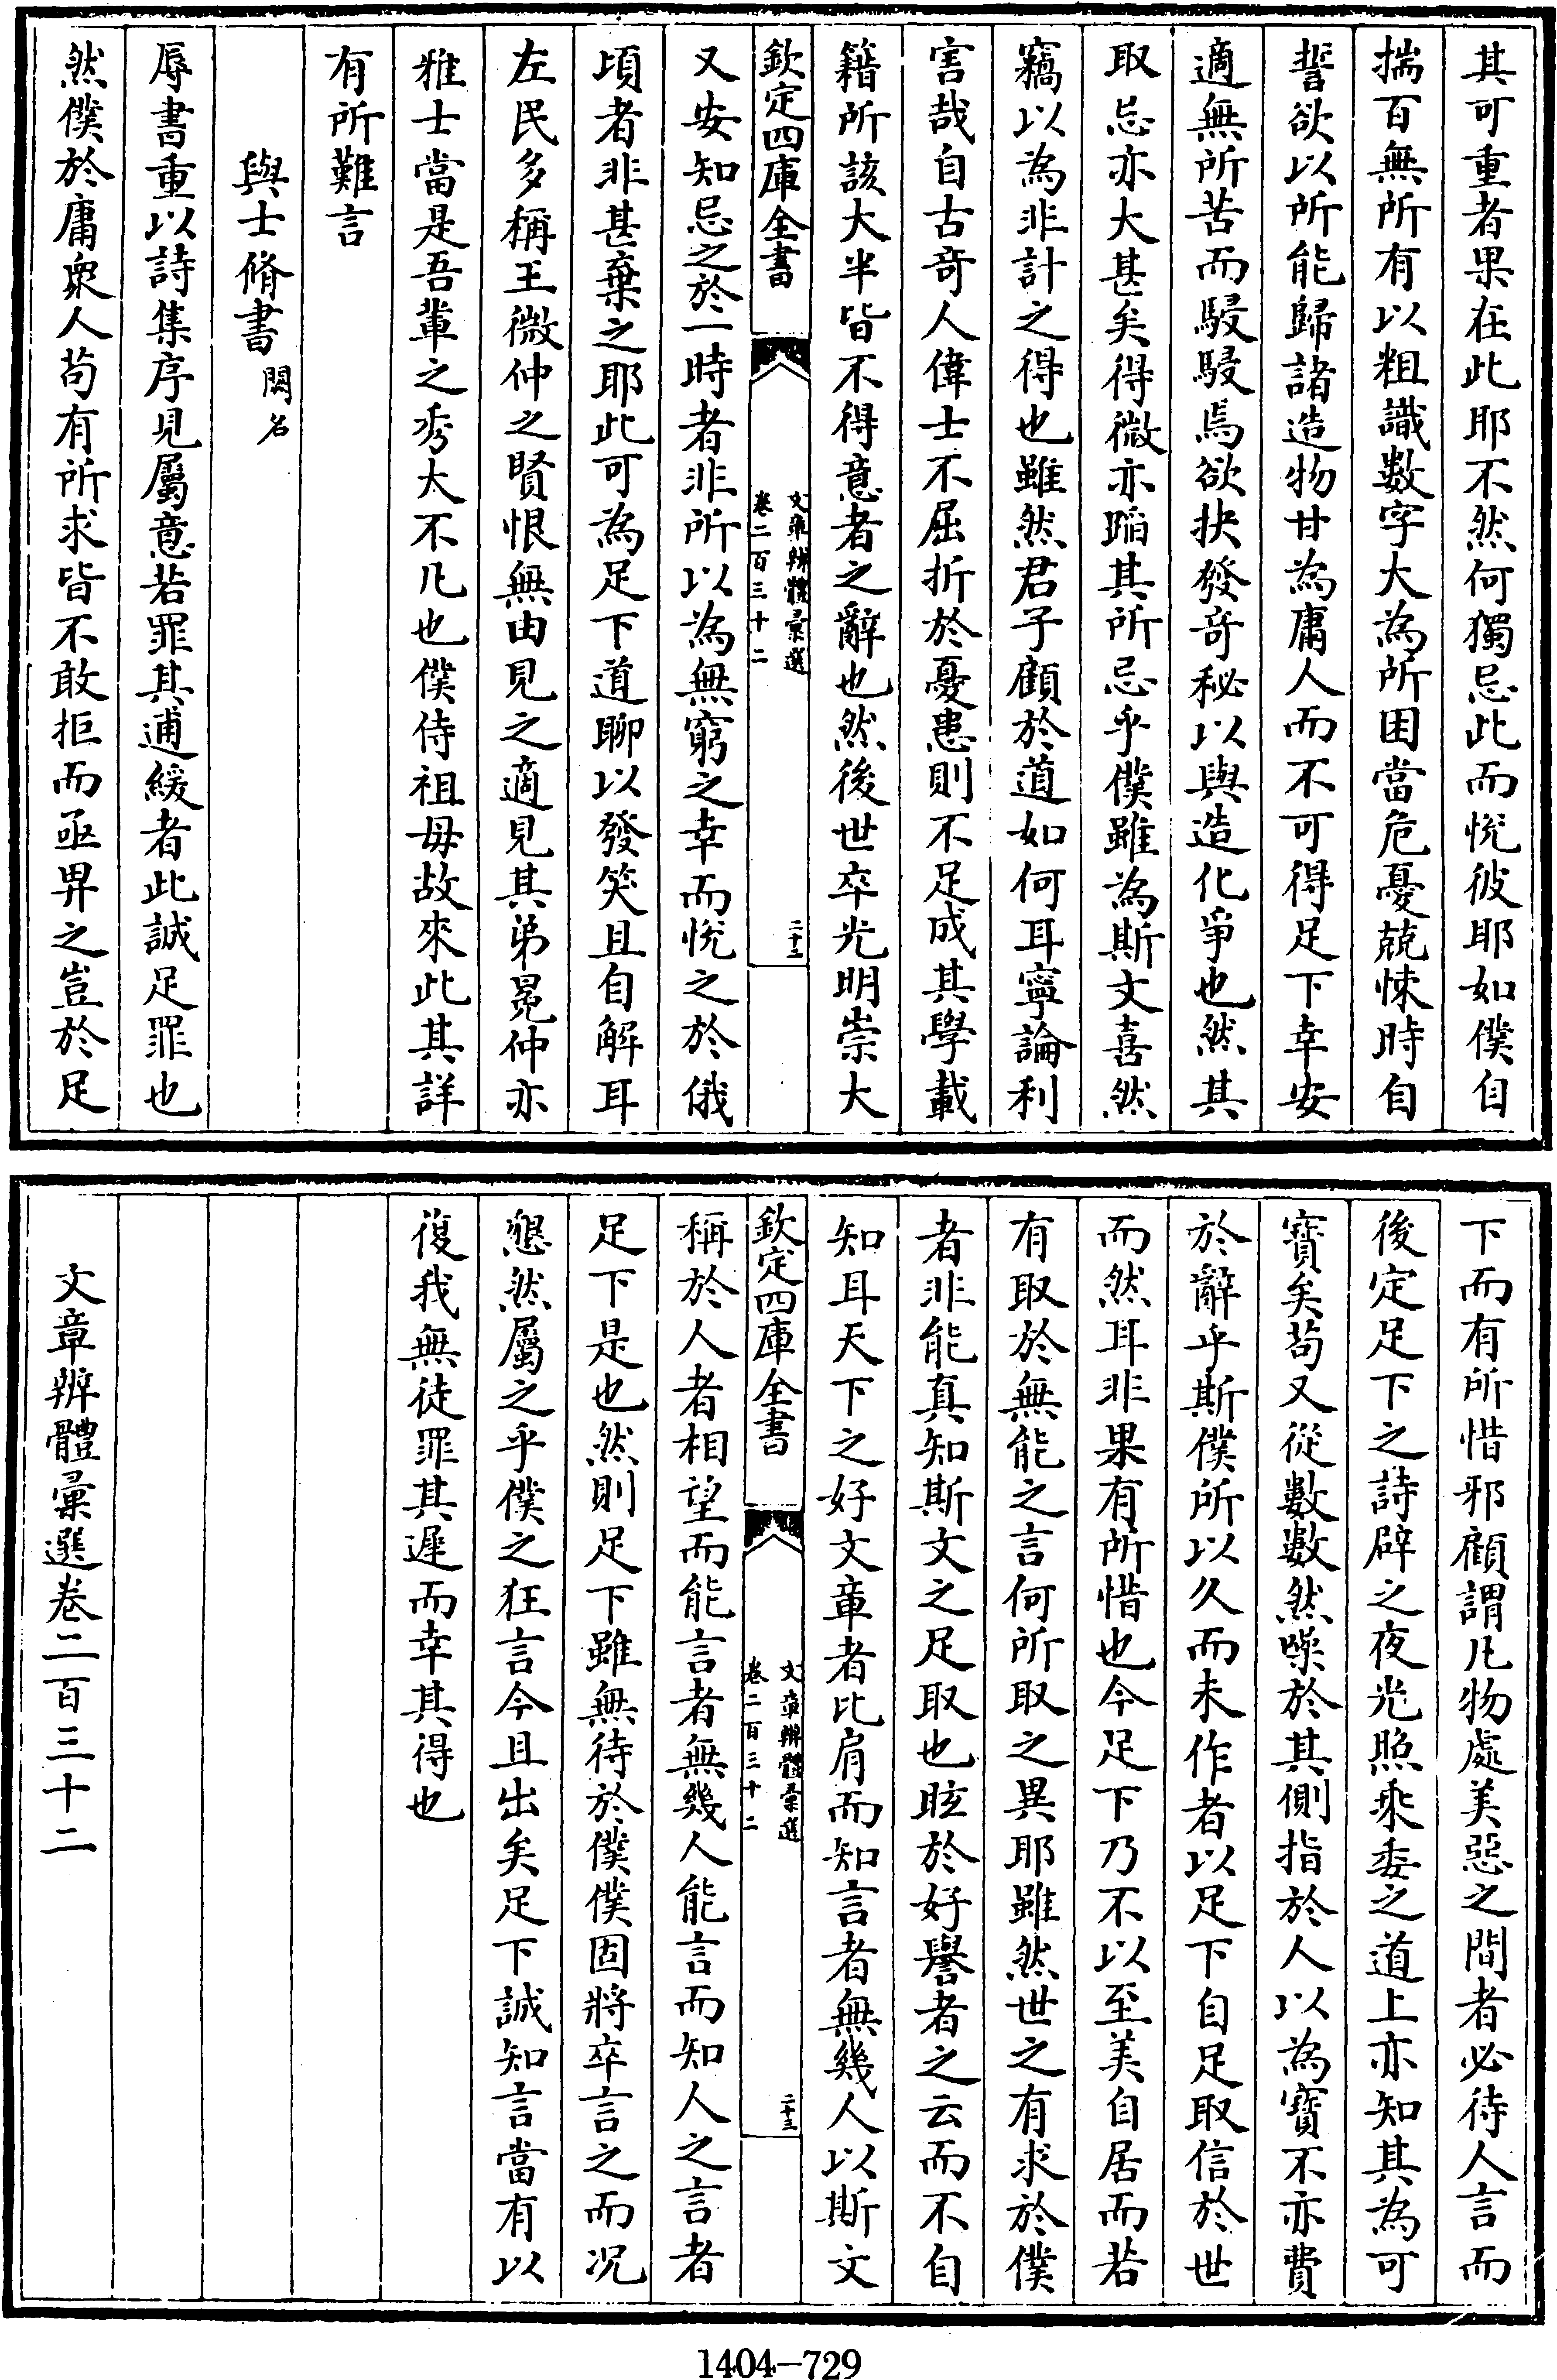 其可重者果在此耶不然何獨忌此而悅彼耶如僕自
揣百無所有以粗識數字大為所困當危憂兢悚時自
誓欲以所能歸諸造物甘為庸人而不可得足下幸安
適無所苦而駸駸焉欲抉發奇秘以與造化爭也然其
取忌亦大甚矣得微亦蹈其所忌乎僕雖為斯文喜然
竊以為非計之得也雖然君子顧於道如何耳寧論利
害哉自古奇人偉士不屈折於憂患則不足成其學載
籍所該大半皆不得意者之辭也然後世卒光明崇大
欽定四庫全書
文章辨體彙選
卷二百三十二
二十二
又安知忌之於一時者非所以為無窮之幸而悅之於俄
頃者非甚棄之耶此可為足下道聊以發笑且自解耳
左民多稱王微仲之賢恨無由見之適見其弟冕仲亦
雅士當是吾輩之秀太不凡也僕侍祖母故來此其詳
有所難言
與士脩書闕名
辱書重以詩集序見屬意若罪其逋緩者此誠足罪也
然僕於庸衆人苟有所求皆不敢拒而亟畀之豈於足
下而有所惜邪顧謂凡物處美惡之間者必待人言而
後定足下之詩辟之夜光照乘委之道上亦知其為可
寶矣苟又從數數然噪於其側指於人以為寶不亦費
於辭乎斯僕所以久而未作者以足下自足取信於世
而然耳非果有所惜也今足下乃不以至美自居而若
有取於無能之言何所取之異耶雖然世之有求於僕
者非能真知斯文之足取也眩於好譽者之云而不自
知耳天下之好文章者比肩而知言者無幾人以斯文
欽定四庫全書
文章辨體彙選
卷二百三十二
二十三
稱於人者相望而能言者無幾人能言而知人之言者
足下是也然則足下雖無待於僕僕固將卒言之而况
懇然屬之乎僕之狂言今且出矣足下誠知言當有以
復我無徒罪其遲而幸其得也
文章辨體彙選卷二百三十二
1404-729